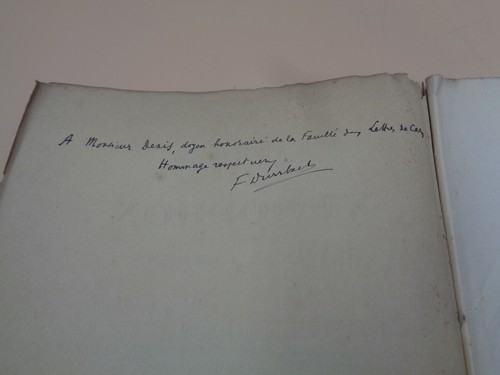 A Monsieur Denis, doyen honoraire de la Faculté des Lettres de Caen
Hommage respectueux
F Durrbach